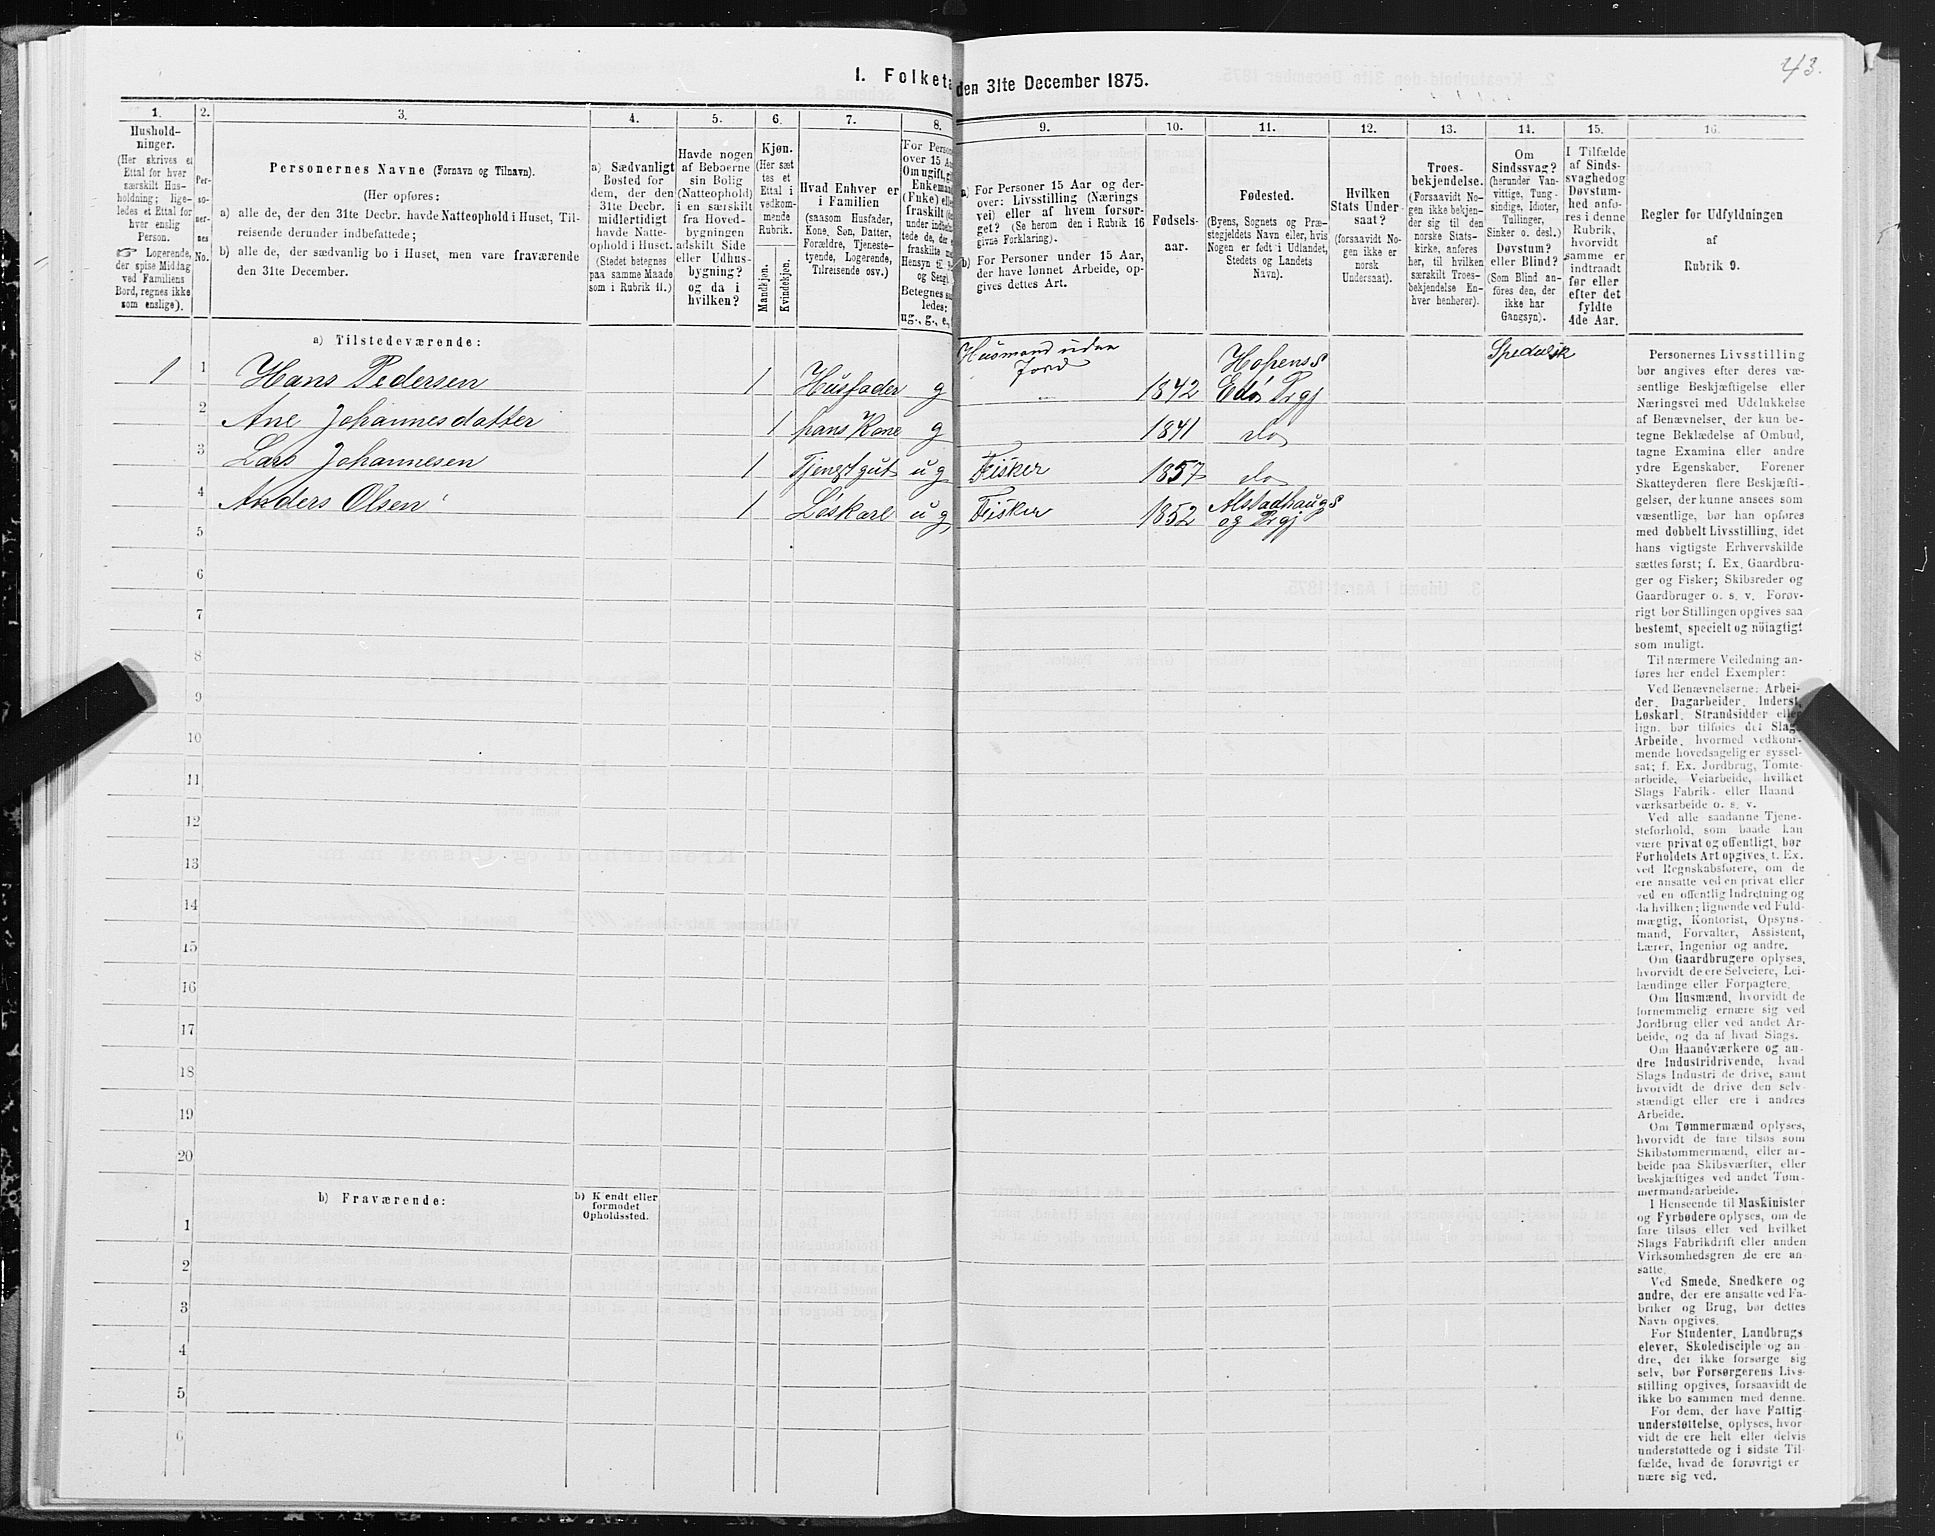 43.
1. Folketa
den 31te December 1875.
1.
Hushold-
ninger.
(Her skrives et
Ettal for hver
særskilt Hus-
holdning; lige-
ledes et Ettal for
hver enslig
Person.
☞ Logerende,
der spise Middag
ved Familiens
Bord, regnes ikke
som enslige).
2.
Per-
so-
ner-
nes
No.
3.
Personernes Navne (Fornavn og Tilnavn).
(Her opføres:
a) alle de, der den 31te Decbr. havde Natteophold i Huset, Til-
reisende derunder indbefattede;
b) alle de, der sædvanlig bo i Huset, men vare fraværende
den 31te December.
4.
a) Sædvanligt
Bosted for
dem, der den
31te Decbr.
midlertidigt
havde Natte-
ophold i Huset.
(Stedet betegnes
paa samme Maade
som i Rubrik 11.)
5.
Havde nogen
af Beboerne
sin Bolig
(Natteophold)
i en særskilt
fra Hoved-
bygningen
adskilt Side
eller Udhus-
bygning?
og da i
hvilken?
6.
Kjøn.
(Her sæt
tes et
Ettal i
vedkom-
mende
Rubrik.
Mandkjøn.
Kvindekjøn.
7.
Hvad Enhver er
i Familien
(saasom Husfader,
Kone, Søn, Datter,
Forældre, Tjeneste-
tyende, Logerende,
Tilreisende osv.)
8.
For Person
over 15 Aa
Om ugift, gi
Enkeman
(Fuke) elle
fraskilt (
under indbe
tede de, der e
fraskilte m
Hensyn til
og Seng).
Betegnes sa
ledes:
ug., g., e.,
9.
a) For Personer 15 Aar og der-
over: Livsstilling (Nærings
vei) eller af hvem forsør-
get? (Se herom den i Rubrik 16
givne Forklaring).
b) For Personer under 15 Aar,
der have lønnet Arbeide, op-
gives dettes Art.
10.
Fødsels-
aar.
11.
Fødested.
(Byens, Sognets og Præ-
stegjeldets Navn eller, hvis
Nogen er født i Udlandet,
Stedets og Landets
Navn).
12.
Hvilken
Stats Under
saat?
(forsaavidt No-
gen ikke er
norsk
Undersaat).
13.
Troes-
bekjendelse.
(Forsaavidt No-
gen ikke bekjen-
der sig til den
norske Stats-
kirke, anføres
her, til hvilken
særskilt Troes-
bekjendelse En-
hver henhører).
14.
Om
Sindssvag?
(herunder Van-
vittige, Tung-
sindige, Idioter,
Tullinger,
Sinker o. desl.)
Døvstum?
eller Blind?
(Som Blind an-
føres den, der
ikke har
Gangsyn).
15.
I Tilfælde
af Sinds-
svaghed og
Døvstum-
hed anfø-
res i denne
Rubrik,
hvorvidt
samme er
indtraadt
før eller
efter det
fyldte
4de Aar.
16.
Regler for Udfyldningen
af
Rubrik 9.
a) Tilstedeværende:
1 1 Hans Pedersen 1 Husfader g Husmand uden Jord 1842 Hopens S Edø Prgj Spedalsk
2 Ane Johannesdatter 1 hans Kone g 1841 do
3 Lars Johannesen 1 Tjenestgut ug Fisker 1857 do
4 Anders Olsen 1 Løskarl ug Fisker 1852 Alstadhaugs og Prgj
5
6
7
8
9
10
11
12
13
14
15
16
17
18
19
20
b) Fraværende:
b) Kendt eller
formodet
Opholdssted.
1
2
3
4
5
6
Personernes Livsstilling
bør angives efter deres væ-
sentlige Beskjæftigelse eller
Næringsvei med Udelukkelse
af Benævnelser, der kun be-
tegne Beklædelse af Ombud,
tagne Examina eller andre
ydre Egenskaber. Forener
Skatteyderen flere Beskjæfti-
gelser, der kunne ansees som
væsentlige, bør han opføres
med dobbelt Livsstilling, idet
hans vigtigste Erhvervskilde
sættes først; f. Ex. Gaardbru-
ger og Fisker; Skibsreder og
Gaardbruger o. s. v. Forøv-
rigt bør Stillingen opgives saa
bestemt, specielt og nöiagtigt
som muligt.
Til nærmere Veiledning an-
føres her endel Exempler:
Ved Benævnelserne: Arbei-
der, Dagarbeider, Inderst,
Løskarl, Strandsidder eller
lign. bør tilføies det Slags
Arbeide, hvormed vedkom-
mende hovedsagelig er syssel-
sat; f. Ex. Jordbrug, Tomte-
arbeide, Veiarbeide, hvilket
Slags Fabrik- eller Haand-
værksarbeide o. s. v.
Ved alle saadanne Tjene-
steforhold, som baade kan
være privat og offentligt, bør
Forholdets Art opgives, t. Ex.
ved Regnskabsførere, om de
ere ansatte ved en privat eller
ved en offentlig Indretning og
da hvilken; lignende ved Fuld-
mægtig, Kontorist, Opsyns-
mand, Forvalter, Assistent,
Lærer, Ingeniør og andre.
Om Gaardbrugere oplyses,
hvorvidt de ere Selveiere, Lei-
lændinge eller Forpagtere.
Om Husmænd, hvorvidt de
fornemmelig ernære sig ved
Jordbrug eller ved andet Ar-
beide, og da af hvad Slags.
Om Haandværkere og an-
dre Industridrivende, hvad
Slags Industri de drive, samt
hvorvidt de drive den selv-
stændigt eller ere i andres
Arbeide.
Om Tømmermænd oplyses,
hvorvidt de fare tilsøs som
Skibstømmermænd, eller ar-
beide paa Skibsværfter, eller
beskjæftiges ved andet Tøm-
mermandsarbeide.
I Henseende til Maskinister
og Fyrbødere oplyses, om de
fare tilsøs eller ved hvilket
Slags Fabrikdrift eller anden
Virksomhedsgren de ere an-
satte.
Ved Smede, Snedkere og
andre, der ere ansatte ved Fa-
briker og Brug, bør dettes
Navn opgives.
For Studenter, Landbrugs
elever, Skoledisciple og an-
dre, der ikke forsørge sig
selv, bør Forsørgerens Livs-
stilling opgives, forsaavidt de
ikke bo sammen med denne.
For dem, der have Fattig-
understøttelse, oplyses, hvor-
vidt de ere helt eller delvis
understøttede og i sidste Til-
fælde, hvad de forøvrigt er
nære sig ved.